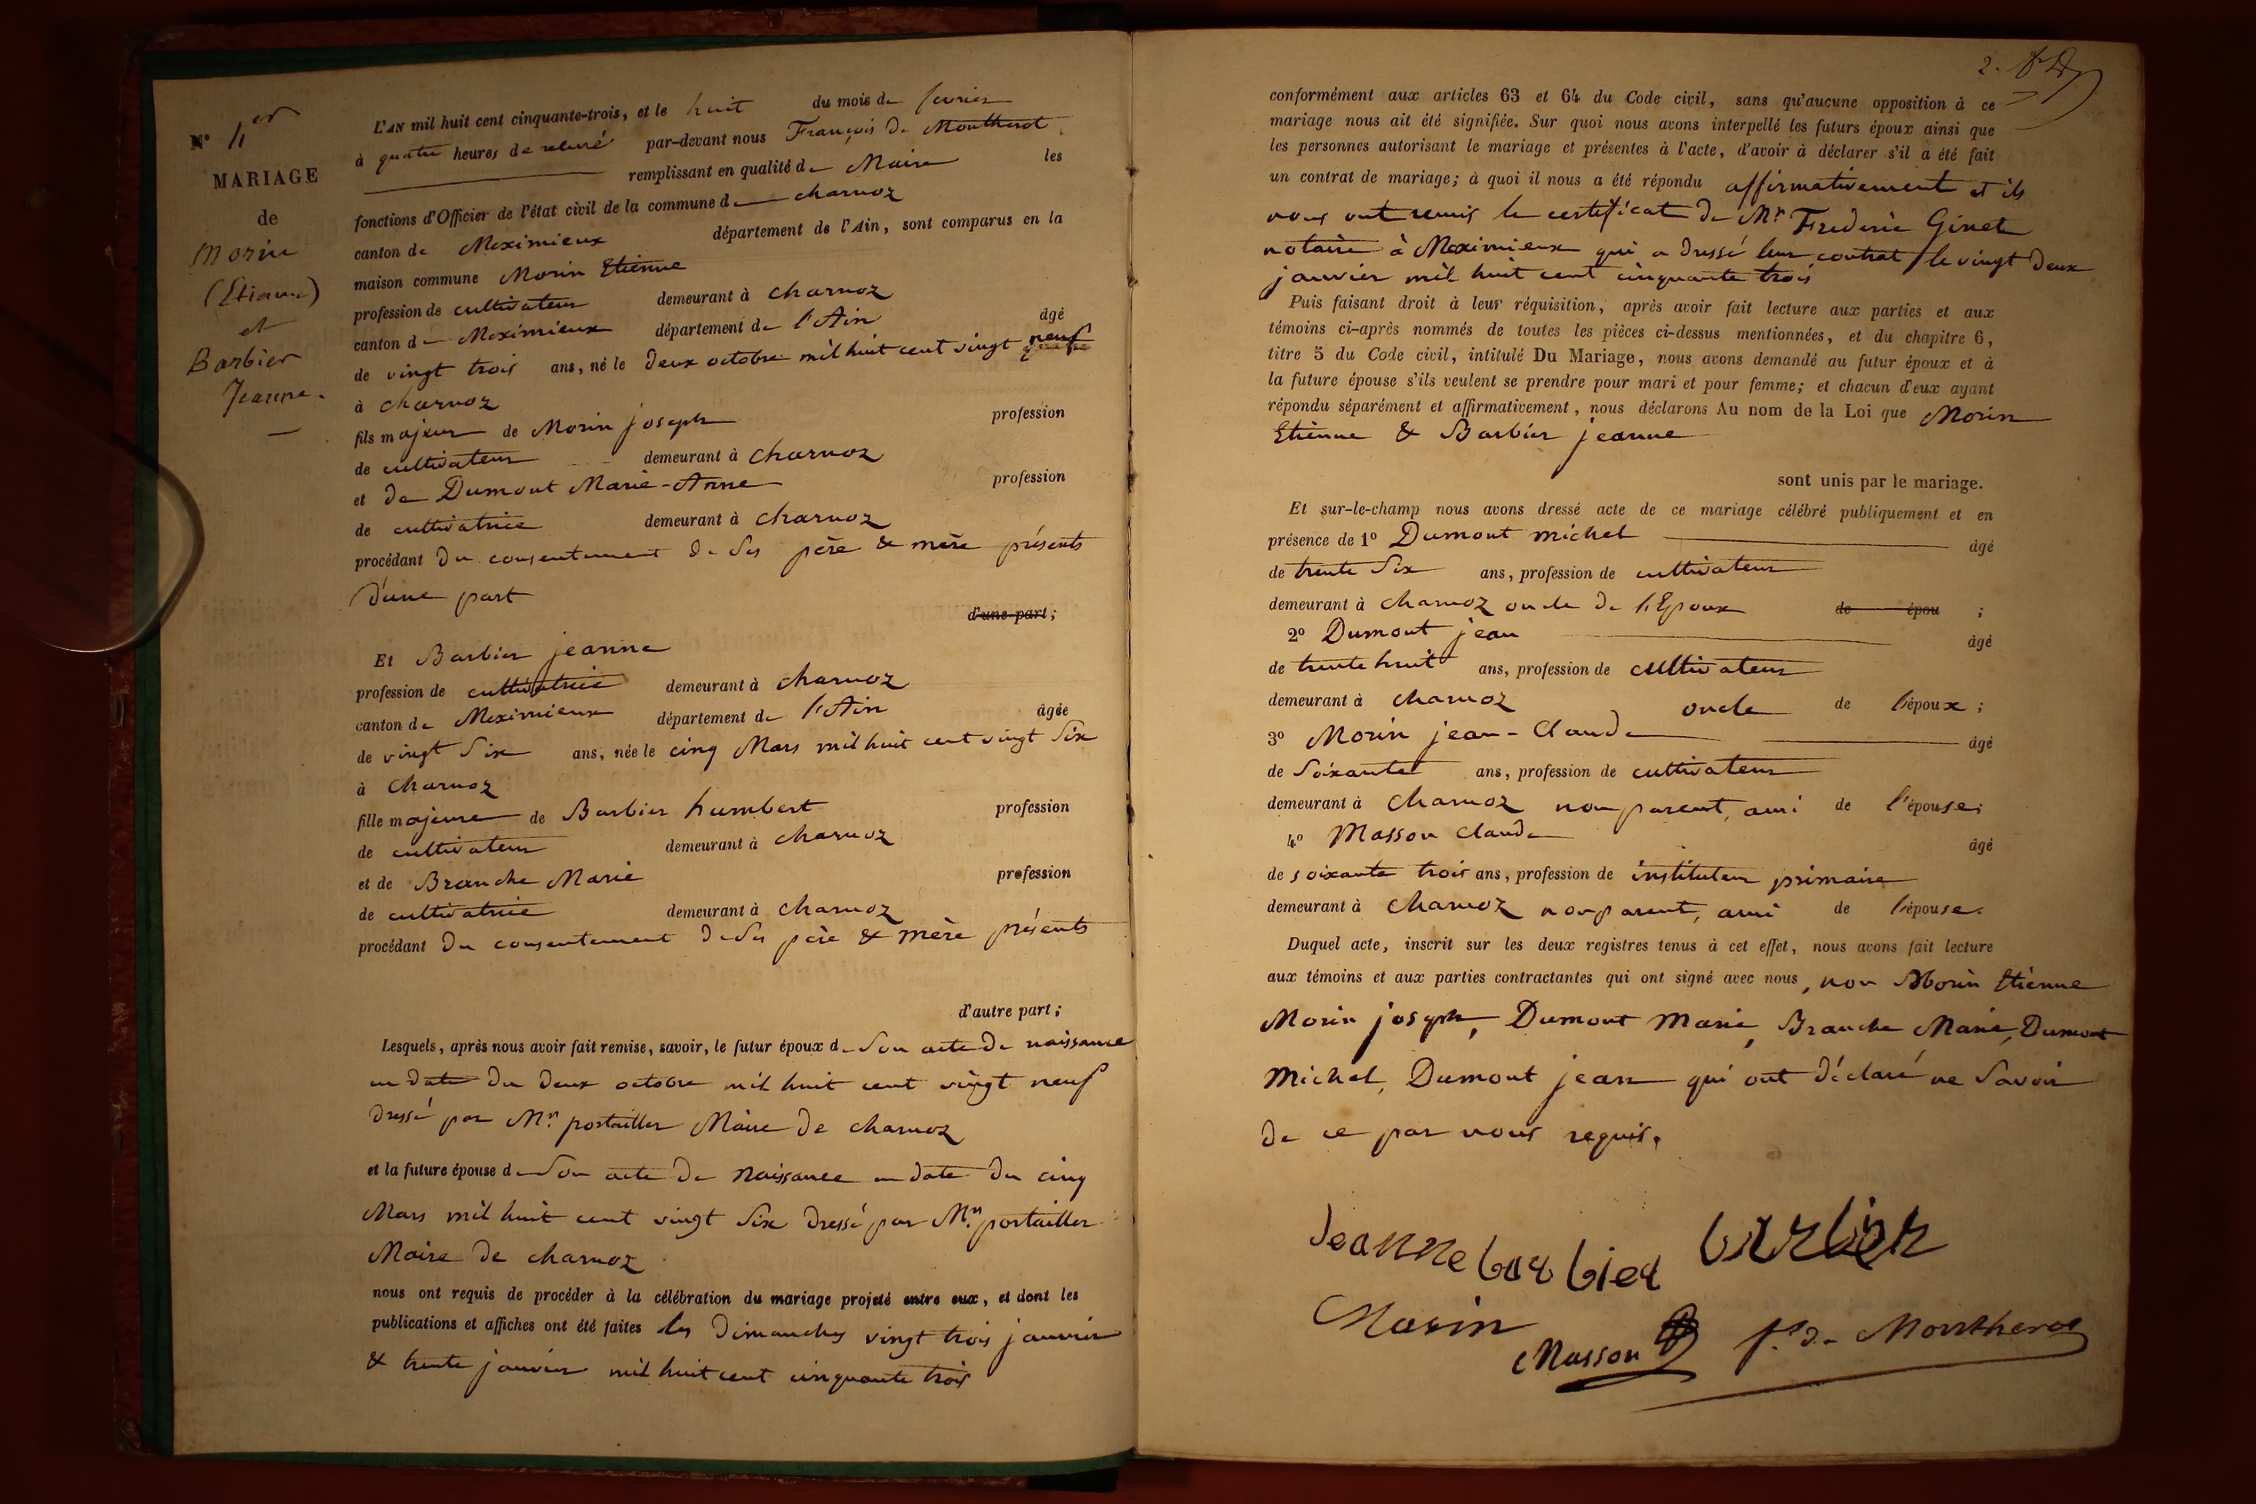 N° 1er
MARIAGE
de
Morin
(Etienne)
et
Barbier
Jeanne.
L'AN mil huit cent cinquante-trois, et le huit du mois de fevrier
à quatre heures de relevé par-devant nous François de Montherot
remplissant en qualité de Maire les
fonctions d'Officier de l'état civil de la commune de charnoz
canton de Meximieux département de l'Ain, sont comparus en la
maison commune Morin Etienne
profession de cultivateur demeurant à charnoz
canton de Meximieux département de l'Ain âgé
de vingt trois ans, né le deux octobre mil huit cent vingt neuf
à charnoz
fils majeur de Morin joseph profession
de cultivateur demeurant à charnoz
et de Dumont Marie-Anne profession
de cultivatrice demeurant à charnoz
procédant du consentement de ses père & mère présents
d'une part
d'une part;
Et Barbier jeanne
profession de cultivatrice demeurant à charnoz
canton de Meximieux département de l'Ain âgée
de vingt six ans, née le cinq Mars mil huit cent vingt six
à charnoz
fille majeure de Barbier humbert profession
de cultivateur demeurant à charnoz
et de Branche Marie profession
de cultivatrice demeurant à charnoz
procédant du consentement de ses père & mère présents
d'autre part;
Lesquels, après nous avoir fait remise, savoir, le futur époux de son acte de naissance
en date du deux octobre mil huit cent vingt neuf
dressé par Mr. portailler Maire de charnoz
et la future épouse de son acte de naissance en date du cinq
Mars mil huit cent vingt six dressé par Mr. portailler
Maire de charnoz
nous ont requis de procéder à la célébration du mariage projeté entre eux, et dont les
publications et affiches ont été faites les dimanches vingt trois janvier
& trente janvier mil huit cent cinquante trois
2.
conformément aux articles 63 et 64 du Code civil, sans qu'aucune opposition à ce
mariage nous ait été signifiée. Sur quoi nous avons interpellé les futurs époux ainsi que
les personnes autorisant le mariage et présentes à l'acte, d'avoir à déclarer s'il a été fait
un contrat de mariage; à quoi il nous a été répondu affirmativement et ils
nous ont remis le certificat de Mr Frederic Ginet
notaire à Meximieux qui a dressé leur contrat le vingt deux
janvier mil huit cent cinquante trois
Puis faisant droit à leur réquisition, après avoir fait lecture aux parties et aux
témoins ci-après nommés de toutes les pièces ci-dessus mentionnées, et du chapitre 6,
titre 5 du Code civil, intitulé Du Mariage, nous avons demandé au futur époux et à
la future épouse s'ils veulent se prendre pour mari et pour femme; et chacun d'eux ayant
répondu séparément et affirmativement, nous déclarons Au nom de la Loi que Morin
Etienne & Barbier jeanne
sont unis par le mariage.
Et sur-le-champ nous avons dressé acte de ce mariage célébré publiquement et en
présence de 1° Dumont michel âgé
de trente six ans, profession de cultivateur
demeurant à charnoz oncle de l'Epoux de épou ;
2° Dumont jean âgé
de trente huit ans, profession de cultivateur
demeurant à charnoz oncle de l'époux;
3° Morin jean-Claude âgé
de soixante ans, profession de cultivateur
demeurant à charnoz non parent, ami de l'épouse;
4° Masson claude âgé
de soixante trois ans, profession de instituteur primaire
demeurant à charnoz non parent, ami de l'épouse.
Duquel acte, inscrit sur les deux registres tenus à cet effet, nous avons fait lecture
aux témoins et aux parties contractantes qui ont signé avec nous, non Morin Etienne
Morin joseph, Dumont Marie, Branche Marie, Dumont
Michel, Dumont jean qui ont déclaré ne savoir
de ce par nous requis.
Jeanne barbier barbier
Morin
Masson fs. de Montherot